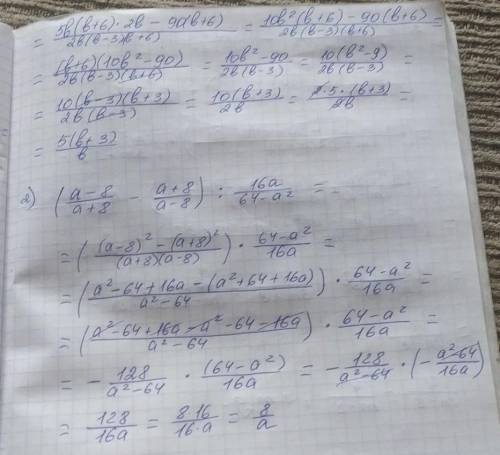 = (5b(b+6)·2b − 90(b+6))/(2b(b−3)(b+6)) = (10b²(b+6) − 90(b+6))/(2b(b−3)(b+6)) =
= ((b+6)(10b²−90))/(2b(b−3)(b+6)) = (10b²−90)/(2b(b−3)) = (10(b²−9))/(2b(b−3)) =
= (10(b−3)(b+3))/(2b(b−3)) = (10(b+3))/(2b) = (2·5·(b+3))/(2b) =
= (5(b+3))/b
2) ((a−8)/(a+8) − (a+8)/(a−8)) : (16a)/(64−a²) =
= (((a−8)² − (a+8)²)/((a+8)(a−8))) · (64−a²)/(16a) =
= ((a²−64+16a − (a²+64+16a))/(a²−64)) · (64−a²)/(16a) =
= ((a²−64+16a−a²−64−16a)/(a²−64)) · (64−a²)/(16a) =
= − 128/(a²−64) · (64−a²)/(16a) = − 128/(a²−64) · (− (a²−64)/(16a))
= 128/(16a) = (8·16)/(16·a) = 8/a